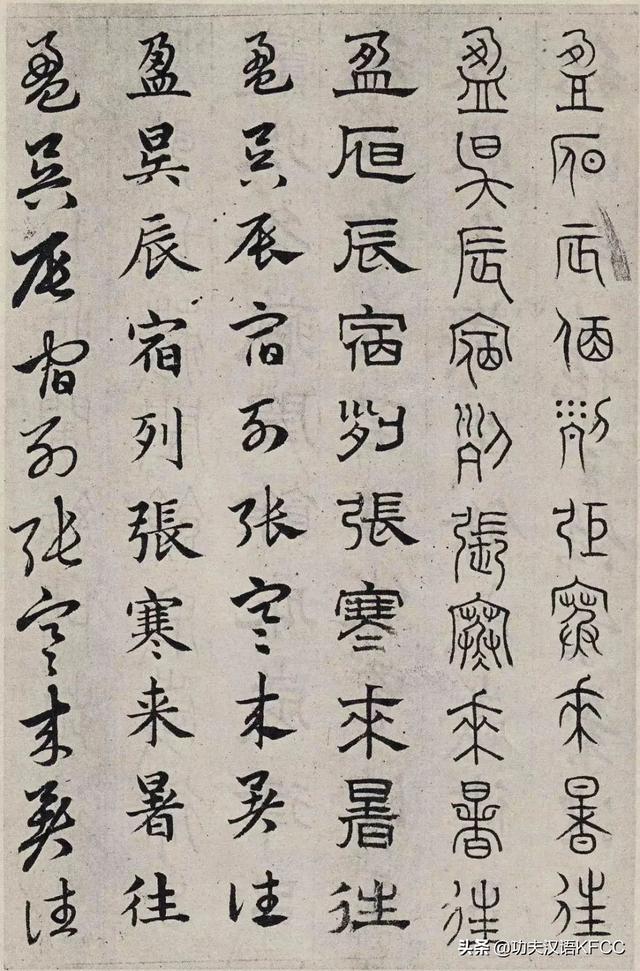 盈昃辰宿列張寒來暑往
盈昃辰宿列張寒來暑往
盈昃辰宿列張寒來暑往
盈昃辰宿列張寒來暑往
盈昃辰宿列張寒来暑往
盈昃辰宿列張寒來暑往
头条 @功夫汉语KFCC